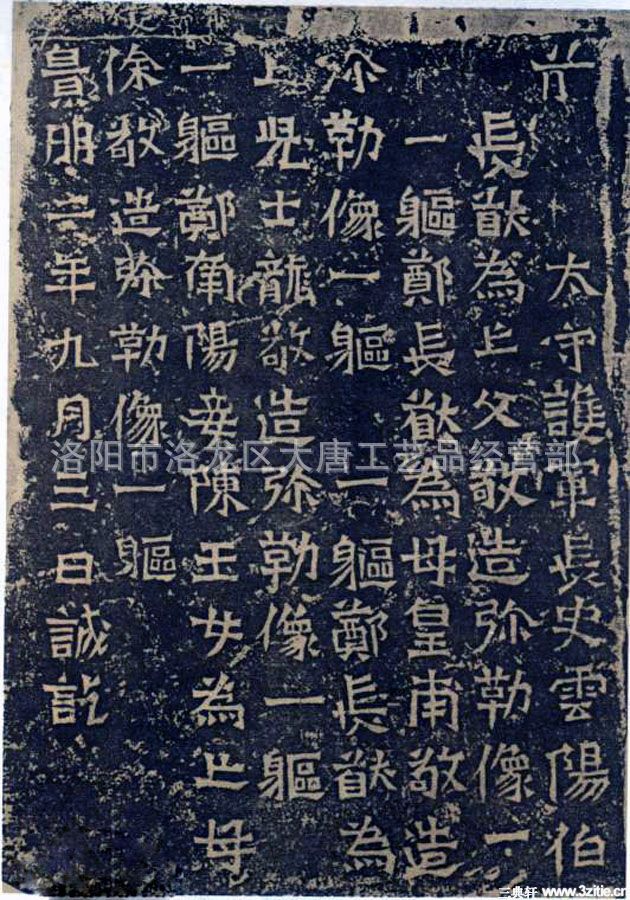 前 太守護軍長史雲陽伯
長猷為亡父敬造弥勒像一
一軀鄭長猷為母皇甫敬造
弥勒像一軀 一軀鄭長猷為
亡兒士龍敬造弥勒像一軀
一軀鄭南陽妾陳玉女為亡母
徐敬造弥勒像一軀
景明二年九月三日誠訖
洛阳市洛龙区大唐工艺品经营部
三典轩 www.3zitie.cn